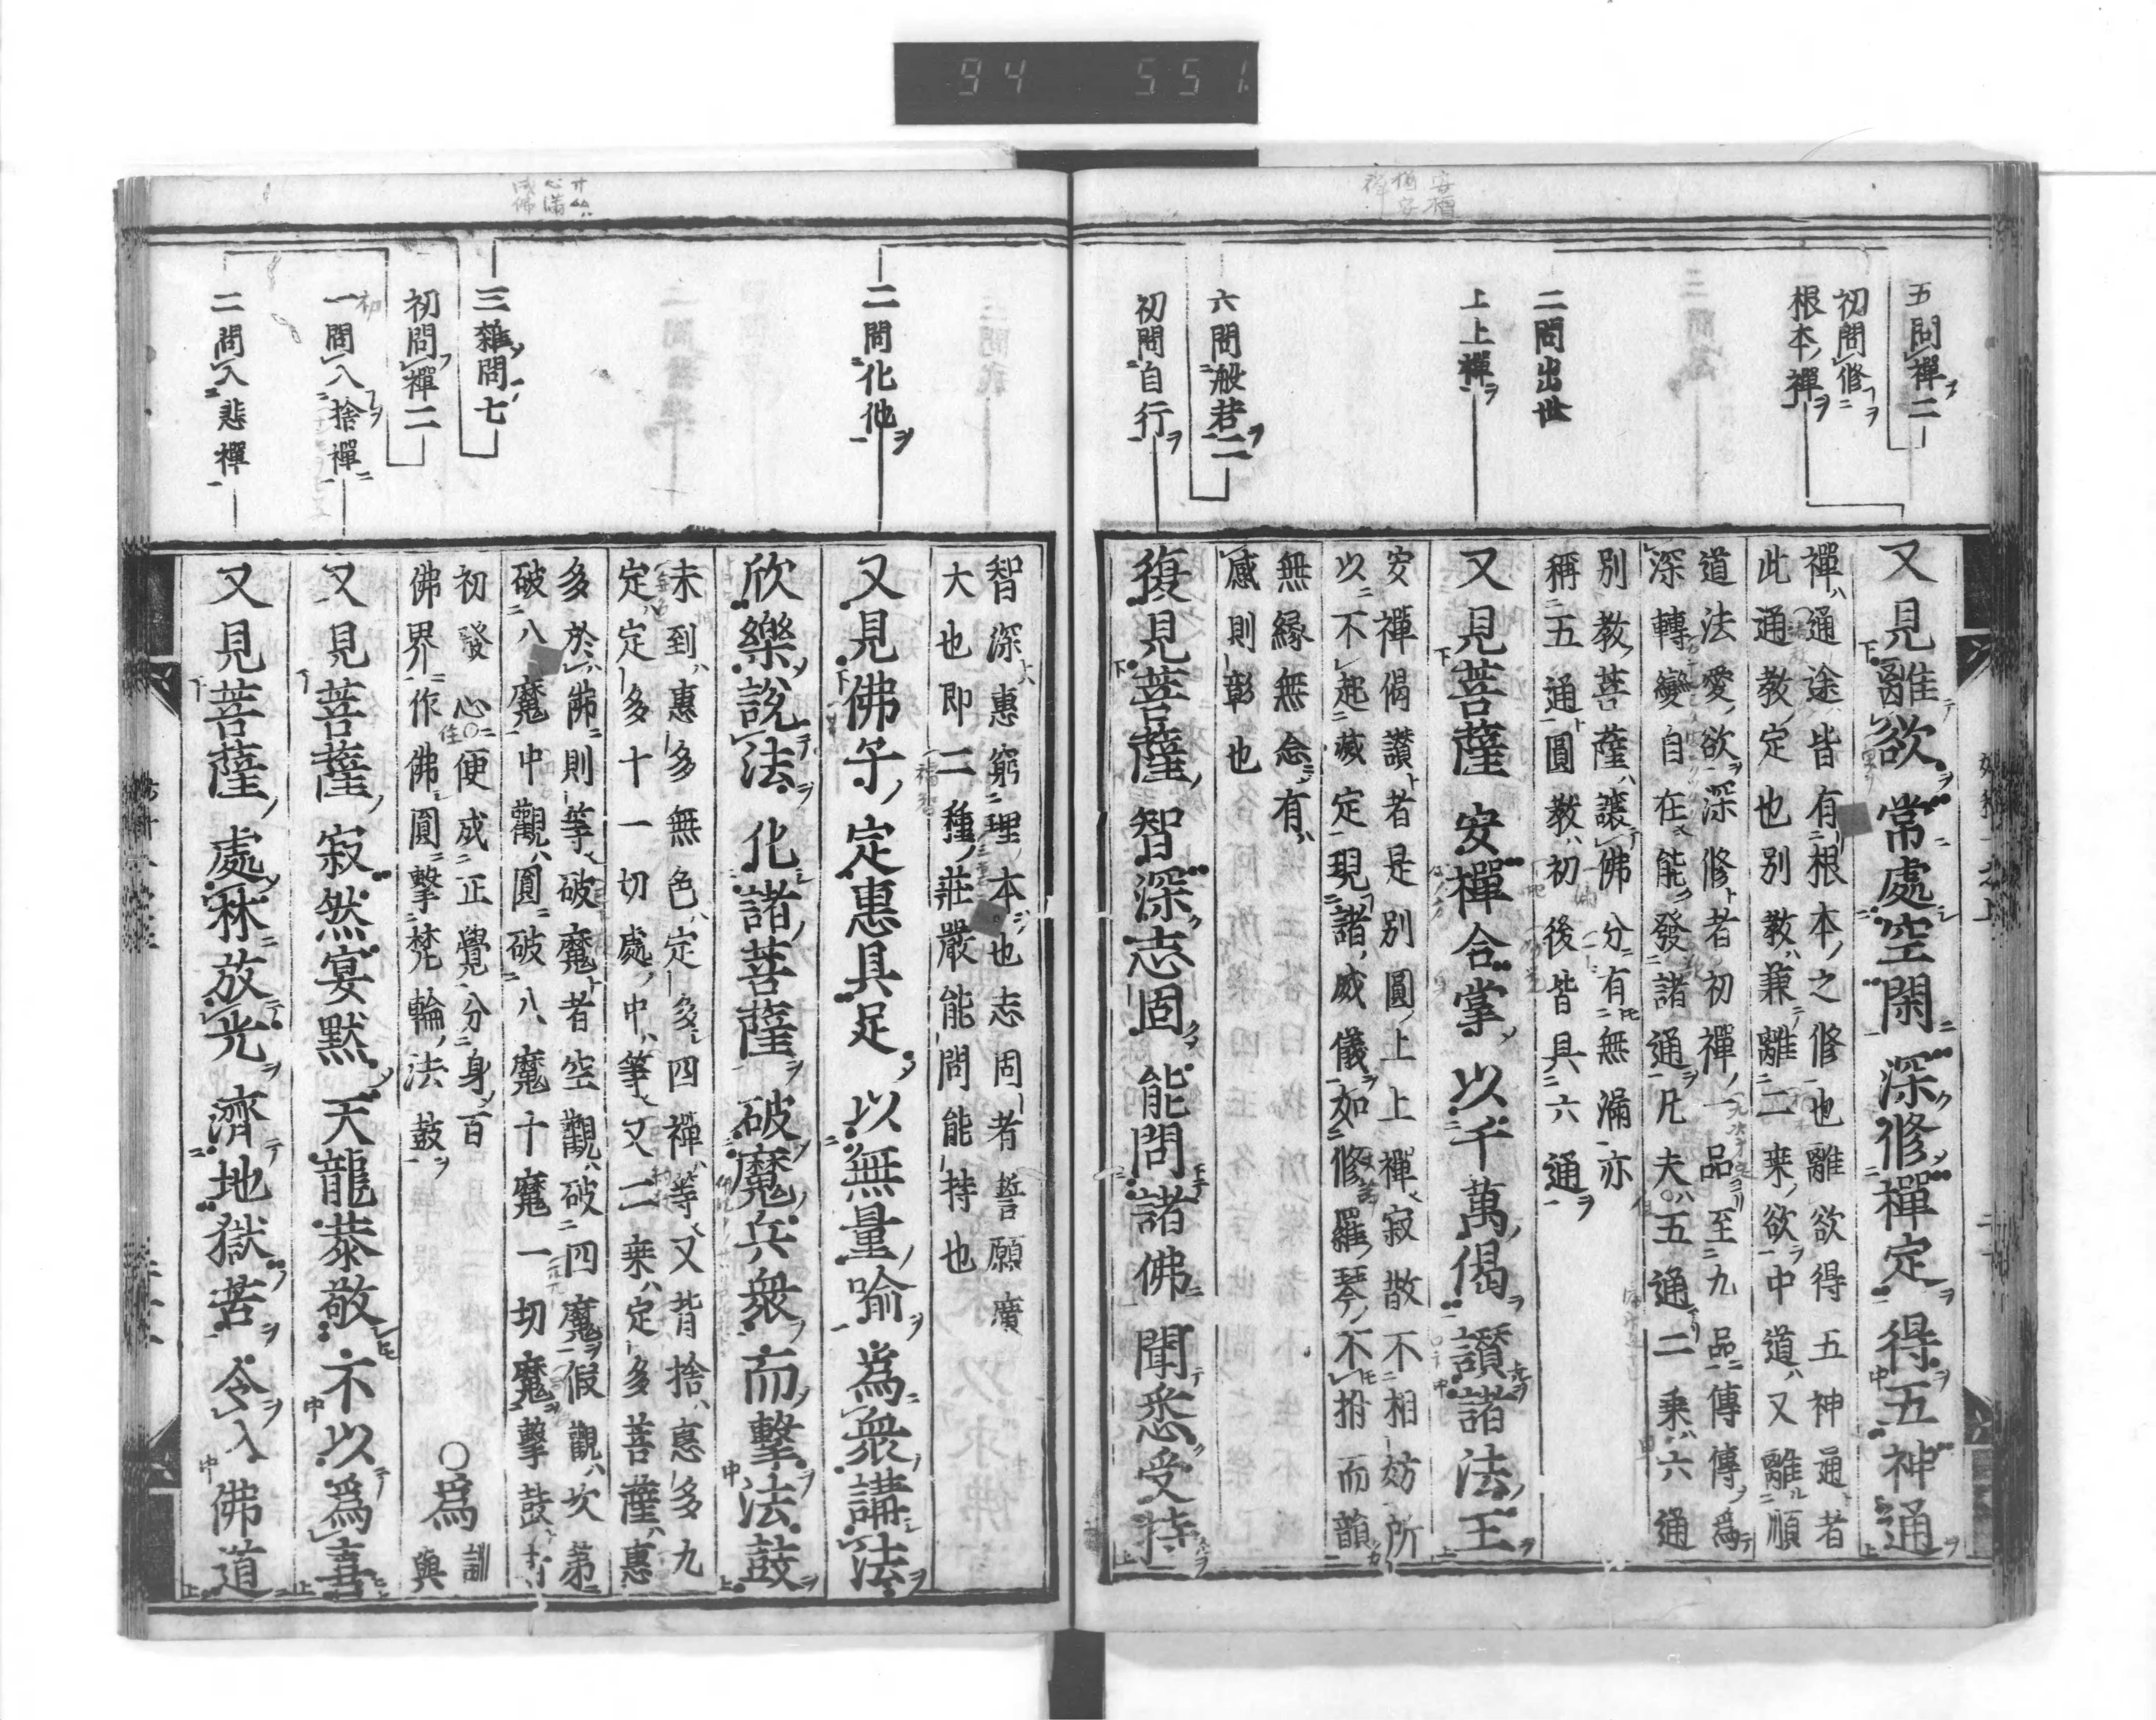 94 551
五問禪二
初問修
根本禪
二問出世
上上禪
六問般若二
初問自行
又見離欲常處空閑深修禪定得五神通
禪通途皆有根本之修也離欲得五神通者
此通教定也別教兼離二乘欲中道又離順
道法愛欲深修者初禪一品至九品傳傳爲
深轉變自在能發諸通凡夫五通二乘六通
別教菩薩讓佛分有無漏亦
稱五通圓教初後皆具六通
又見菩薩安禪合掌以千萬偈讚諸法王
安禪偈讚者是別圓上上禪寂散不相妨所
以不起滅定現諸威儀如修羅琴不撫而韻
無緣無念有
感則彰也
復見菩薩智深志固能問諸佛聞悉受持
二問化他
三雜問七
初問禪二
一問入捨禪
二問入悲禪
智深惠窮理本也志固者誓願廣
大也即二種莊嚴能問能持也
又見佛子定惠具足以無量喻爲衆講法
欣樂說法化諸菩薩破魔兵衆而擊法鼓
未到惠多無色定多四禪等又背捨惠多九
定定多十一切處中等又二乘定多菩薩惠
多於佛則等破魔者空觀破四魔假觀次第
破八魔中觀圓破八魔十魔一切魔擊鼓
初發心便成正覺分身百
佛界作佛圓擊梵輪法鼓
○爲訓與
又見菩薩寂然宴默天龍恭敬不以爲喜
又見菩薩處林放光濟地獄苦令入佛道